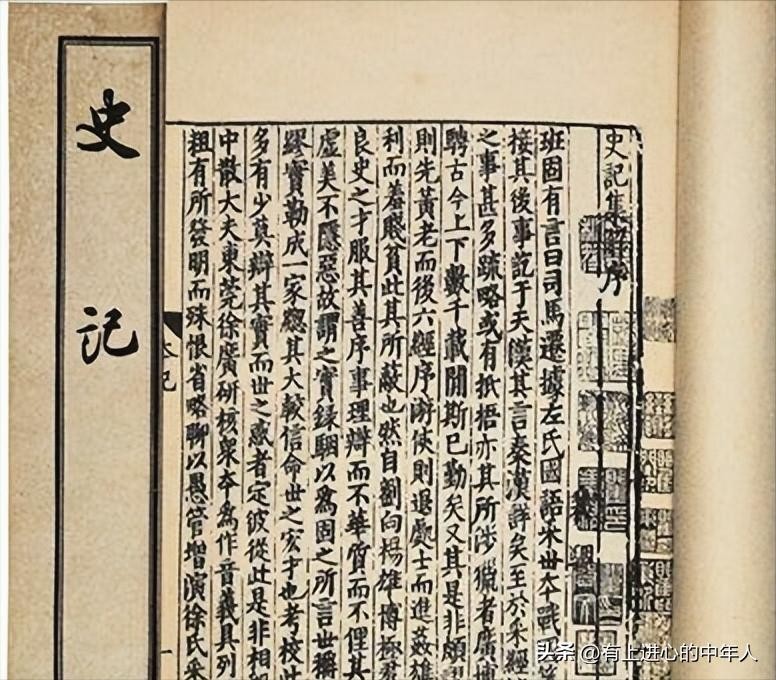 史記集解序
班固有言曰司馬遷據左氏國語采世夲戰國
接其後事訖于天漢其言秦漢詳矣至於采經
之事甚多疏略或有抵捂亦其所涉獵者廣博
騁古今上下數千載閒斯已勤矣又其是非頗
則先黃老而後六經序遊俠則退處士而進姦雄
利而羞賤貧此其所蔽也然自劉向楊雄博極羣
良史之才服其善序事理辯而不華質而不俚其
虛美不隱惡故謂之實錄駰以爲固之所言世稱
繆實勒成一家緫其大較信命世之宏才也考校此
多有少莫辯其實而世之惑者定彼從此是非相
中散大夫東莞徐廣研核衆夲爲作音義具列
粗有所發明而殊恨省略聊以愚管增演徐氏采
史記
头条 @有上进心的中年人